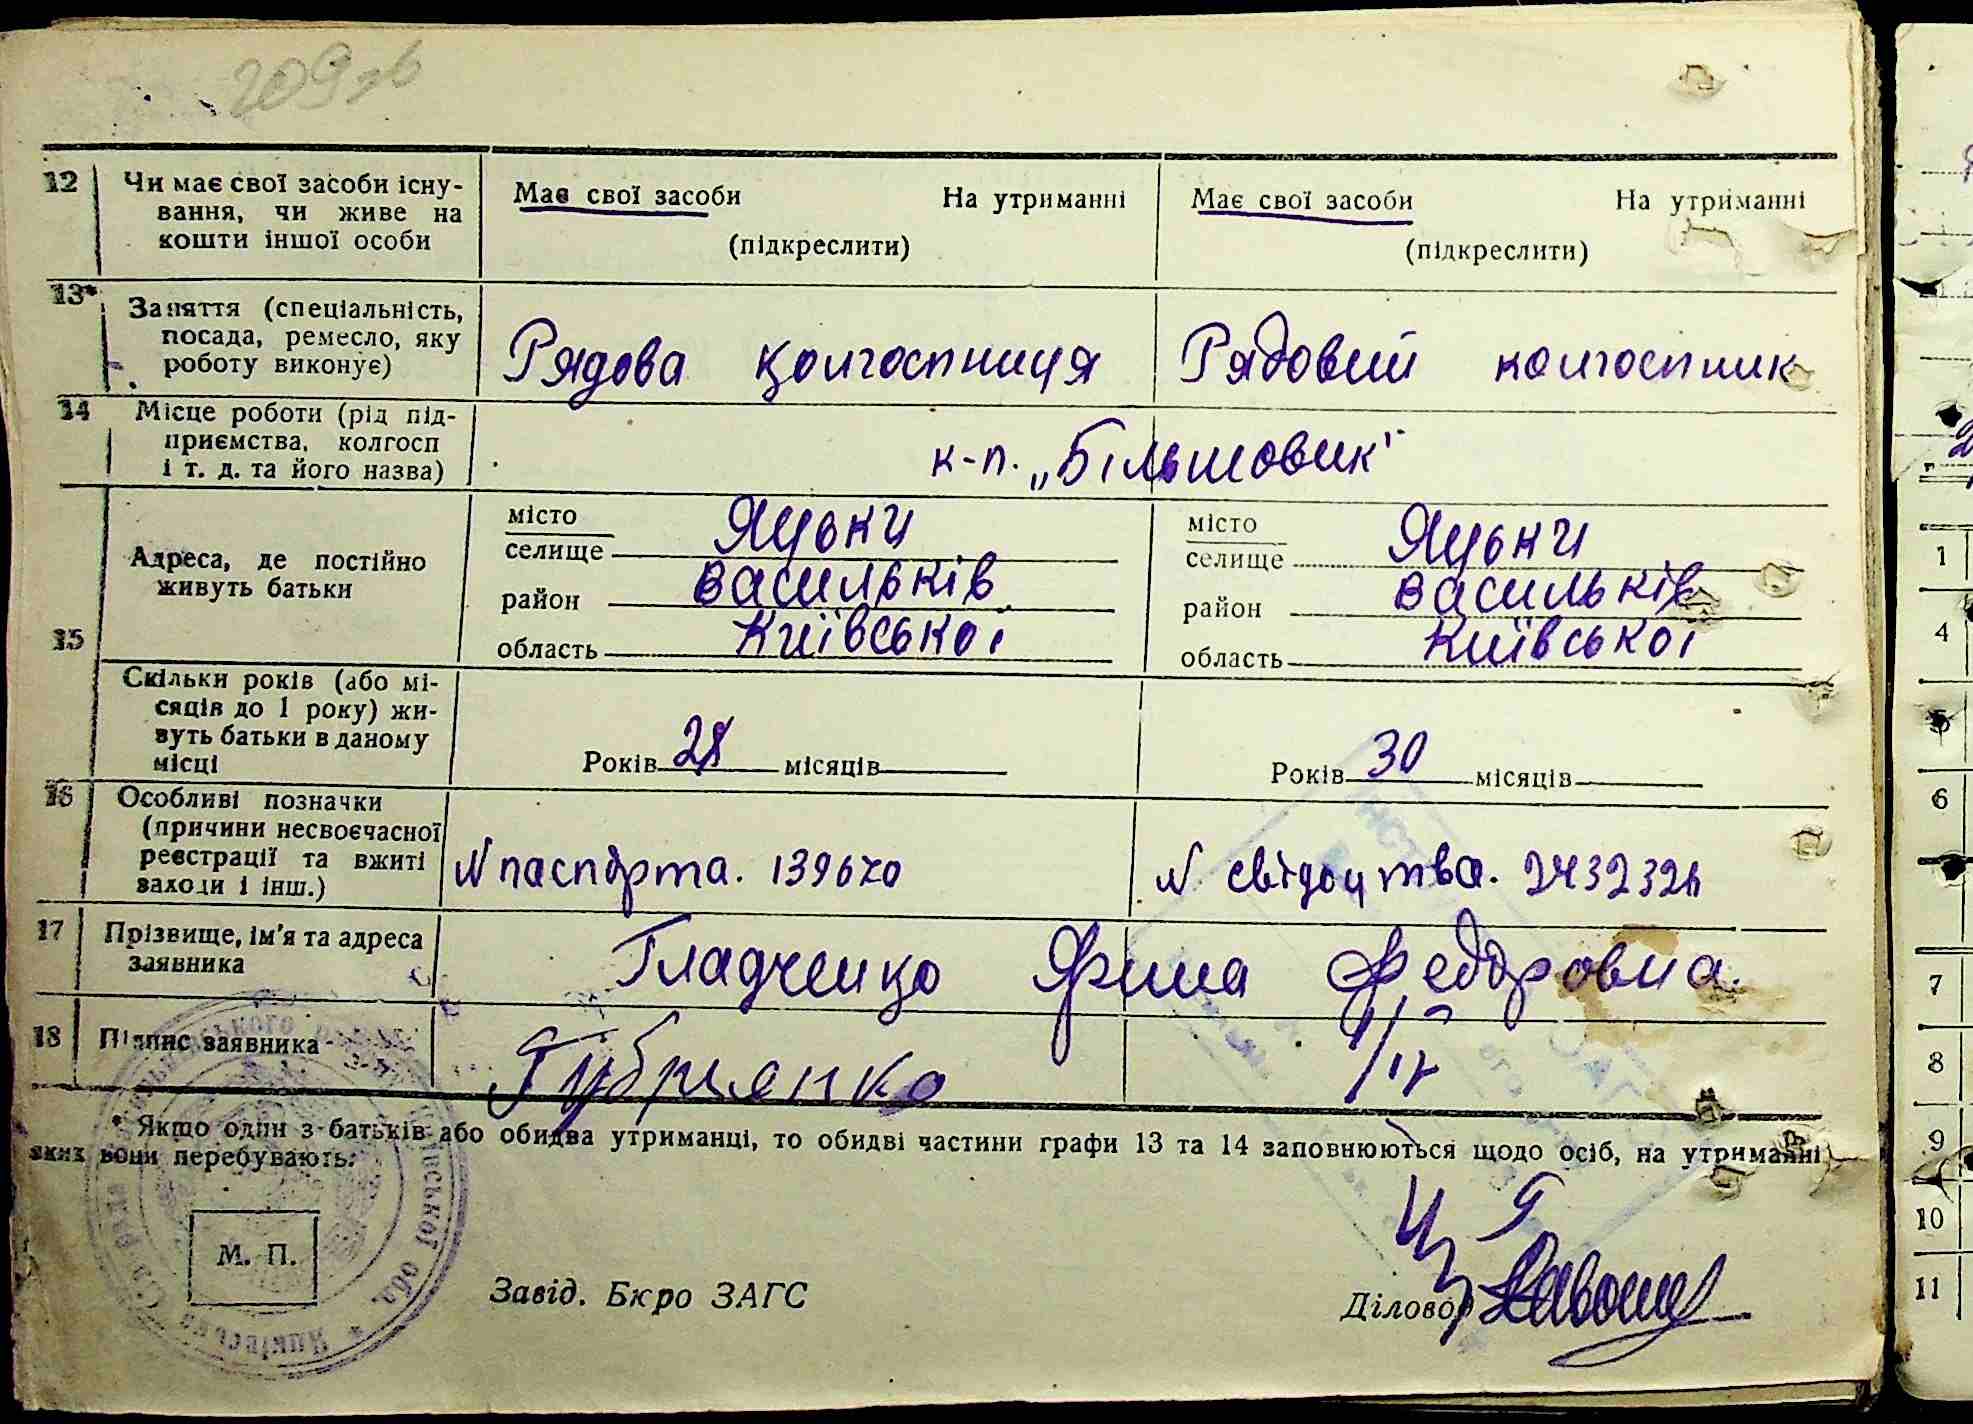 209зв
12 Чи має свої засоби існу-
вання, чи живе на
кошти іншої особи
Має свої засоби На утриманні
(підкреслити)
Має свої засоби На утриманні
(підкреслити)
13* Заняття (спеціальність,
посада, ремесло, яку
роботу виконує)
Рядова колгоспниця
Рядовий колгоспник
14 Місце роботи (рід під-
приємства, колгосп
і т. д. та його назва)
к-п. „Більшовик"
15 Адреса, де постійно
живуть батьки
місто
селище Яцьки
район Васильків
область Київської
місто
селище Яцьки
район Васильків
область Київської
Скільки років (або мі-
сяців до 1 року) жи-
вуть батьки в даному
місці
Років 28 місяців
Років 30 місяців
16 Особливі позначки
(причини несвоєчасної
реєстрації та вжиті
заходи і інш.)
N паспорта.
N. свідоцтва.
17 Прізвище, ім'я та адреса
заявника
Гладченко Фросина Федоровна.
18 Підпис заявника
* Якщо один з батьків або обидва утриманці, то обидві частини графи 13 та 14 заповнюються щодо осіб, на утриманні
яких вони перебувають.
М. П.
Завід. Бюро ЗАГС
Діловод
1
4
5
6
7
8
9
10
11